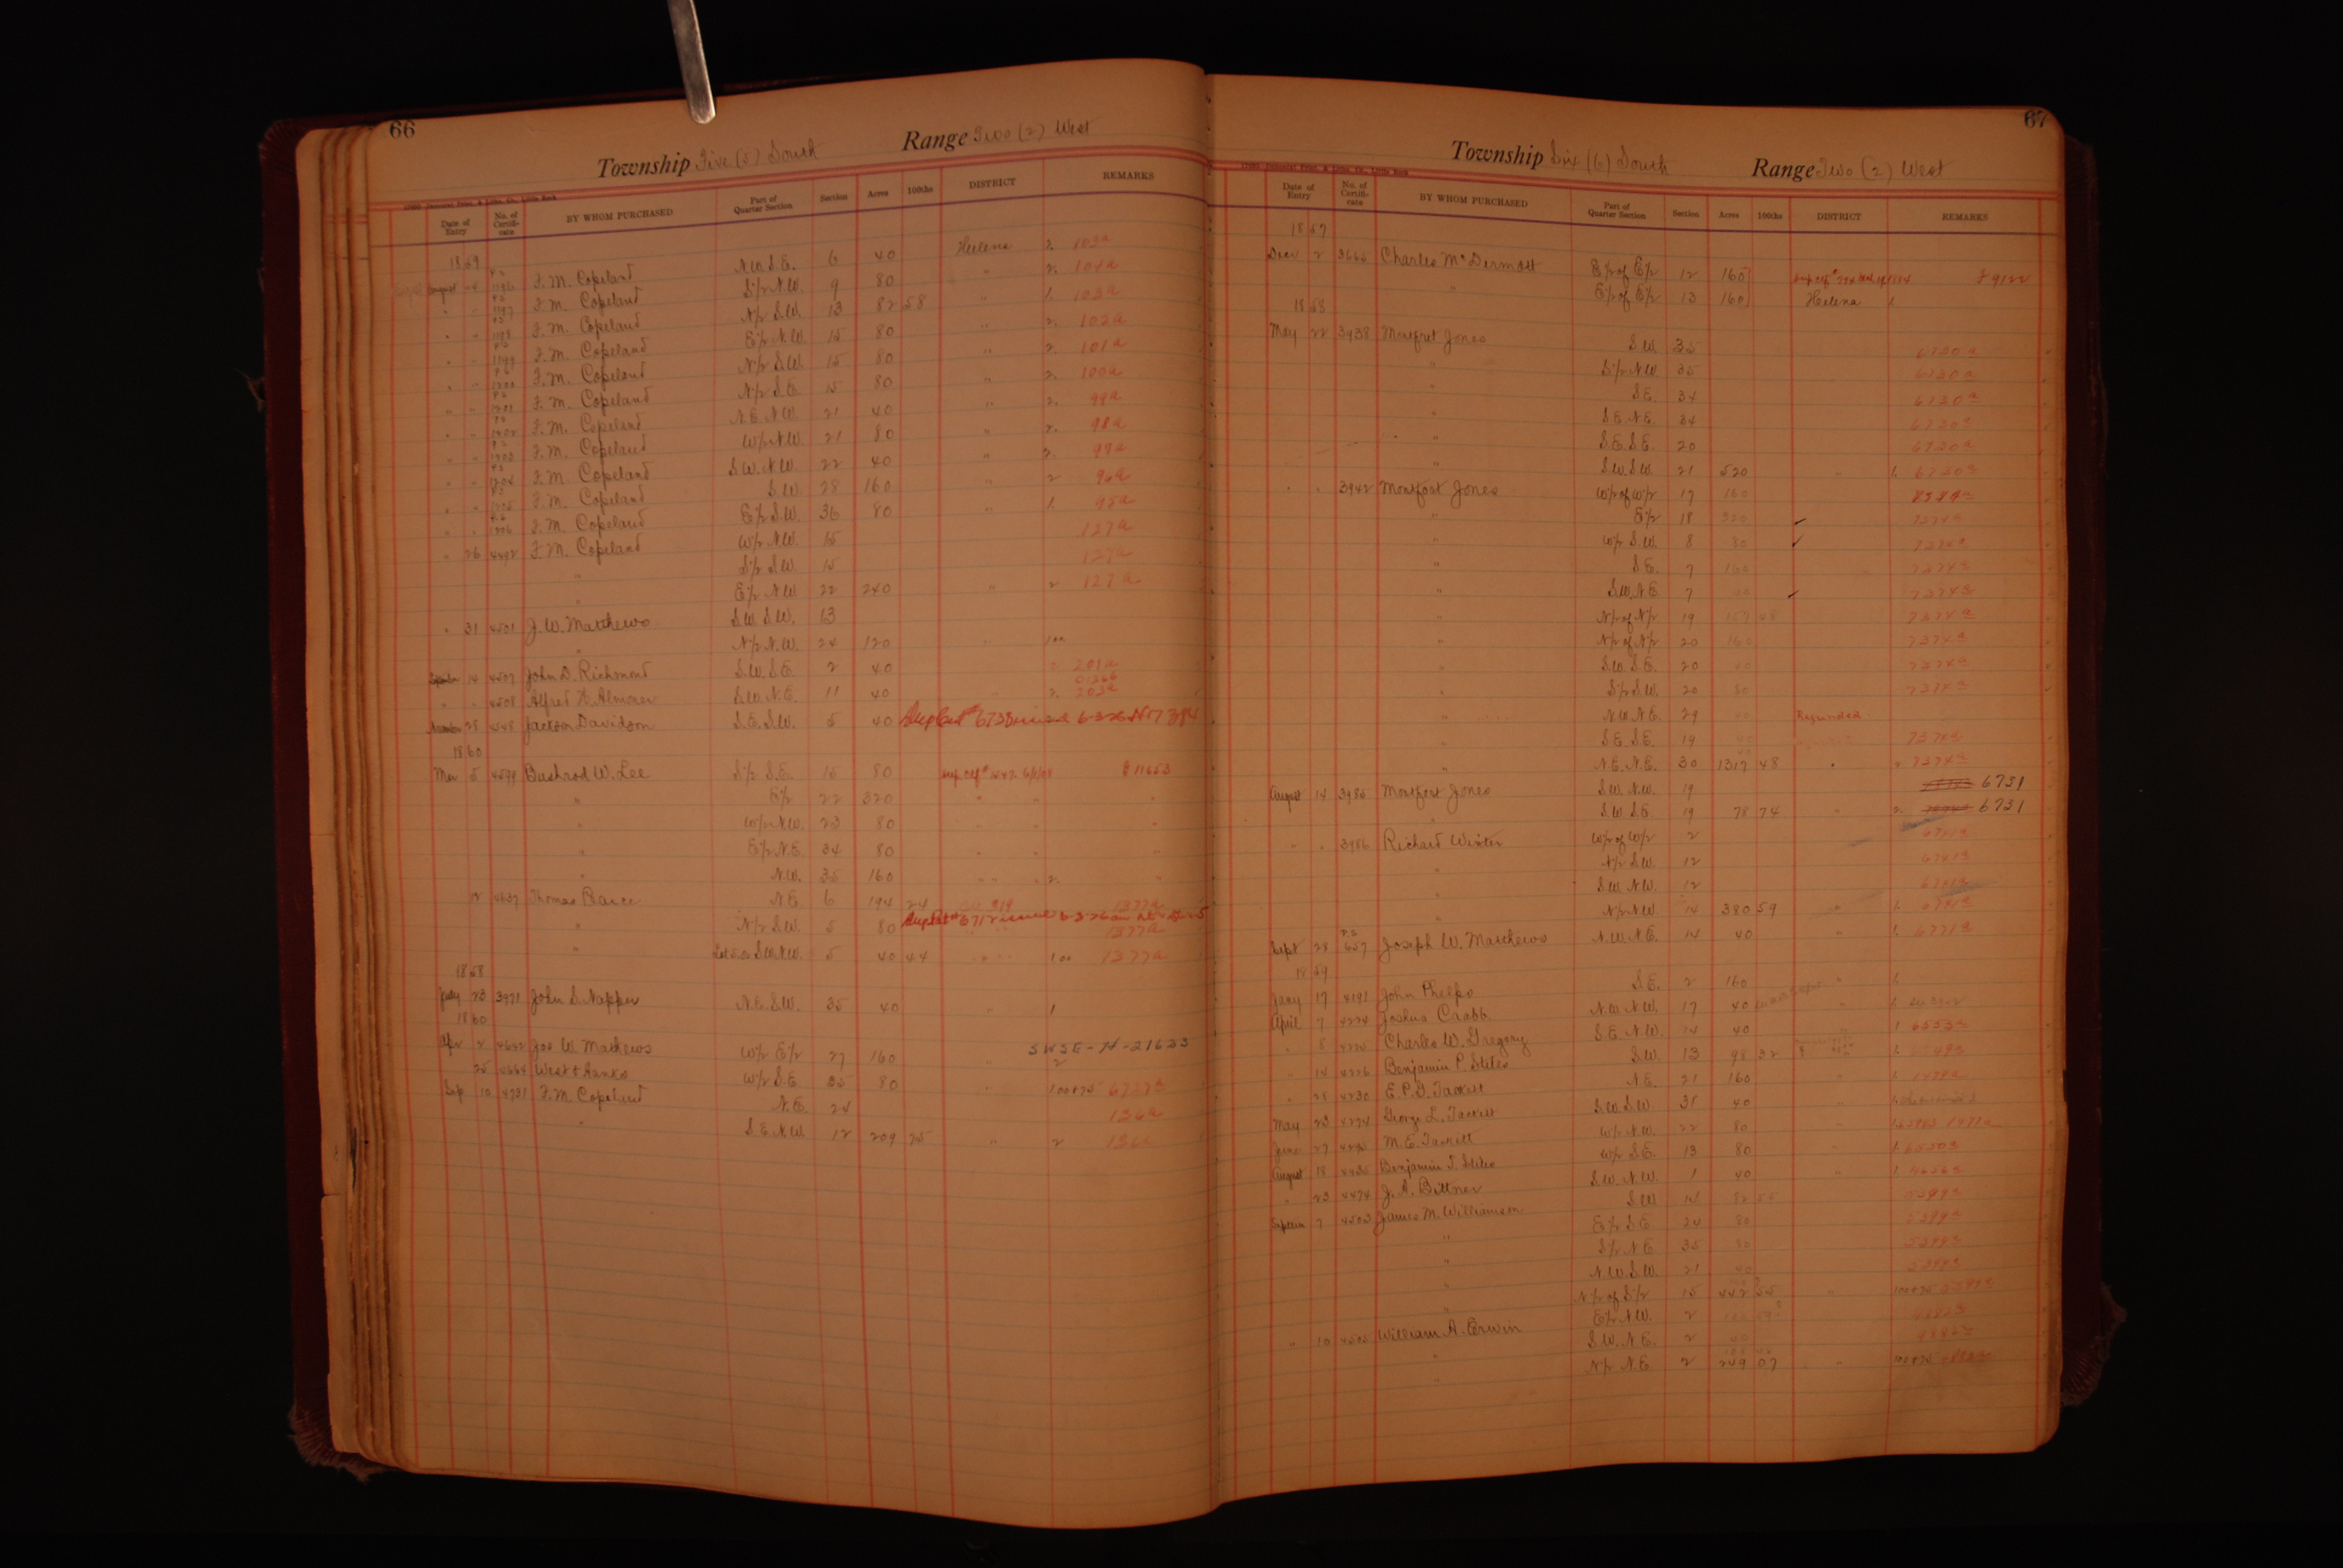 66
Township Five (5) South Range Two (2) West
Date of Entry No. of Certificate BY WHOM PURCHASED Part of Quarter Section Section Acres 100ths DISTRICT REMARKS
1859
August F.M. Copeland N.W. S.E. 6 40 Helena 2. 103a
" " 1197 F.M. Copeland S½ N.W. 9 80 " 2. 104a
" " 1198 F.M. Copeland N½ S.W. 13 82 58 " 1. 103a
" " 1199 F.M. Copeland E½ N.W. 15 80 " 2. 102a
" " 1200 F.M. Copeland N½ S.W. 15 80 " 2. 101a
" " 1201 F.M. Copeland N½ S.E. 15 80 " 2. 100a
" " 1202 F.M. Copeland N.E. N.W. 21 40 " 2. 99a
" " 1203 F.M. Copeland W½ N.W. 21 80 " 2. 98a
" " 1204 F.M. Copeland S.W. N.W. 22 40 " 2. 97a
" " 1205 F.M. Copeland S.W. 28 160 " 2 96a
" " 1206 F.M. Copeland E½ S.W. 36 80 " 1. 95a
" 26 4492 F.M. Copeland W½ N.W. 15 127a
" S½ S.W. 15 127a
" E½ N.W. 22 240 " 2 127a
" 31 4501 J.W. Matthews S.W. S.W. 13
" N½ N.W. 24 120 " 100
September 14 4507 John D. Richmond S.W. S.E. 2 40 2. 201a
" " 4508 Alfred W. Almoner S.W. N.E. 11 40 " 2. 203a
November 28 Jackson Davidson S.E. S.W. 5 40 Dup Cert # 6738 issued 6-3-26
1860
Mar 5 4599 Bushrod W. Lee S½ S.E. 15 80 # 11653
" E½ 22 320 " " "
" W½ N.W. 23 80 " " "
" E½ N.E. 34 80 " " "
" N.W. 35 160 " " 2. "
12 4637 Thomas Pearce N.E. 6 194 24 1377a
" N½ S.W. 5 80 1377a
" S.W. N.W. 5 40 44 " 100 1377a
1858
July 23 3971 John S. Napper N.E. S.W. 35 40 " 1
1860
Apr 2 4642 Jos W. Mathews W½ E½ 27 160 " 2 SWSE-H-21633
25 4664 West & Hanks W½ S.E. 35 80 " 100+75 6727a
Sep 10 4731 F.M. Copeland N.E. 24 136a
" S.E. N.W. 12 209 25 " 2 136a
67
Township Six (6) South Range Two (2) West
Date of Entry No. of Certificate BY WHOM PURCHASED Part of Quarter Section Section Acres 100ths DISTRICT REMARKS
1857
Decr 2 3665 Charles McDermott E½ of E½ 12 160 # 9122
" E½ of E½ 13 160 Helena 1.
1858
May 22 3938 Montfret Jones S.W. 35 6730a
" S½ N.W. 35 6730a
" S.E. 34 6730a
" S.E. N.E. 34 6730a
" S.E. S.E. 20 6730a
" S.W. S.W. 21 520 " 1. 6730a
" " 3942 Montfort Jones W½ of W½ 17 160 7374a
" E½ 18 320 7374a
" W½ S.W. 8 80 7374a
" S.E. 7 160 7374a
" S.W. N.E. 7 40 7374a
" N½ of N½ 19 157 48 7374a
" N½ of N½ 20 160 7374a
" S.W. S.E. 20 40 7374a
" S½ S.W. 20 80 7374a
" N.W. N.E. 29 40 Refunded
" S.E. S.E. 19 40 7374a
" N.E. N.E. 30 1317 48 " 2 7374a
August 14 3985 Montfort Jones S.W. N.W. 19 6731
" S.W. S.E. 19 78 74 " 2. 6731
" " 3986 Richard Winter W½ of W½ 2 6741a
" N½ S.W. 12 6741a
" S.W. N.W. 12 6741a
" N½ N.W. 14 380 59 " 1. 6741a
Sept 28 657 Joseph W. Matthews N.W. N.E. 14 40 " 1. 6771a
1859
Jany 17 4191 John Phelps S.E. 2 160 " 1.
April 7 4224 Joshua Crabb N.W. N.W. 17 40 " 1.
" 8 4225 Charles W. Gregory S.E. N.W. 14 40 " 1 6553a
" 14 4226 Benjamin P. Stiles S.W. 13 98 32 1.
" 28 4230 E.P.G. Tackett N.E. 21 160 " 1.
May 23 4274 George L. Tackett S.W. S.W. 31 40 "
June 27 M.E. Tackett W½ N.W. 22 80 1471a
August 18 4450 Benjamin T. Stiles W½ S.E. 13 80 1. 6550a
" 23 4474 J.A. Bittner S.W. N.W. 1 40 " 1. 4656a
Septem 7 4503 James M. Williamson S.W. 14 82 55 5399a
" E½ S.E. 24 80 5399a
" S½ N.E. 35 80 5399a
" N.W. S.W. 21 40 5399a
" N½ of S½ 15 442 55 " 100+75 5399a
" 10 4505 William A. Erwin E½ N.W. 2
" S.W. N.E. 2 40
" N½ N.E. 2 249 07 " 100+75